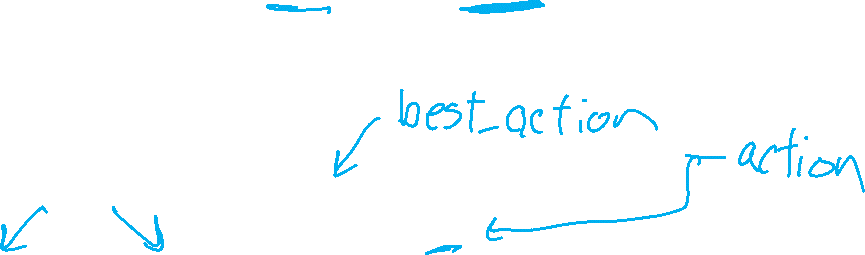 best_action
action